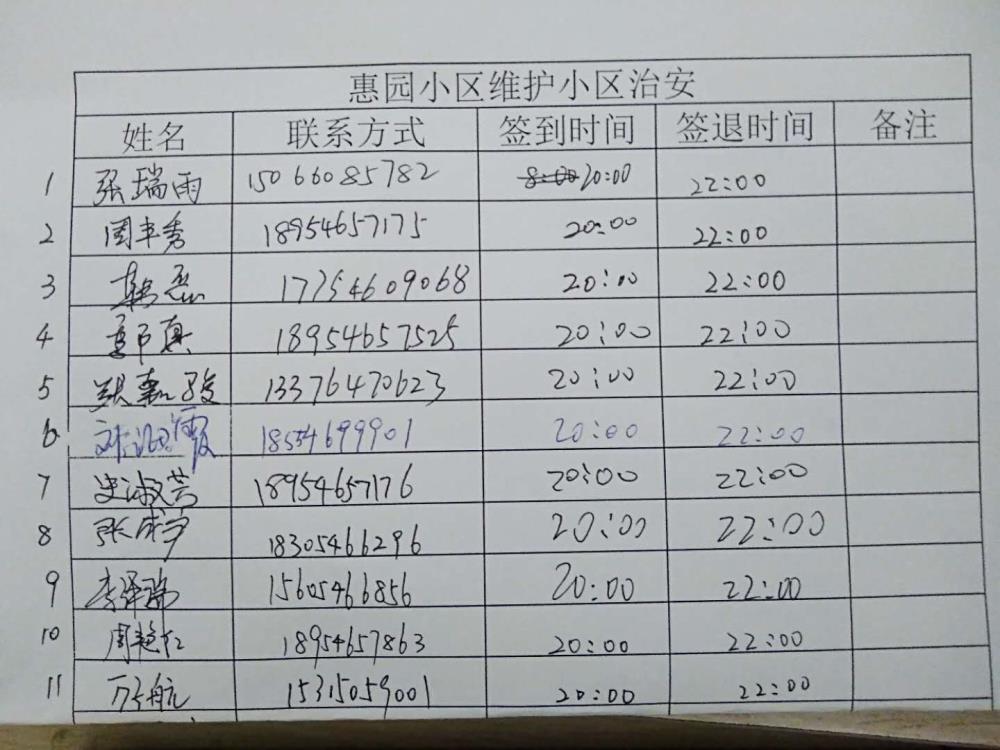 惠园小区维护小区治安
姓名 联系方式 签到时间 签退时间 备注
1 张瑞雨 15066085782 8:00 20:00 22:00
2 周丰秀 18954657175 20:00 22:00
3 韩磊 17754609068 20:00 22:00
4 真 18954657525 20:00 22:00
5 13376470623 20:00 22:00
6 刘 霞 18554699901 20:00 22:00
7 史淑芳 18954657176 20:00 22:00
8 张成宁 18305466296 20:00 22:00
9 李泽瑞 15605466856 20:00 22:00
10 周艳红 18954657863 20:00 22:00
11 万 航 15315059001 20:00 22:00